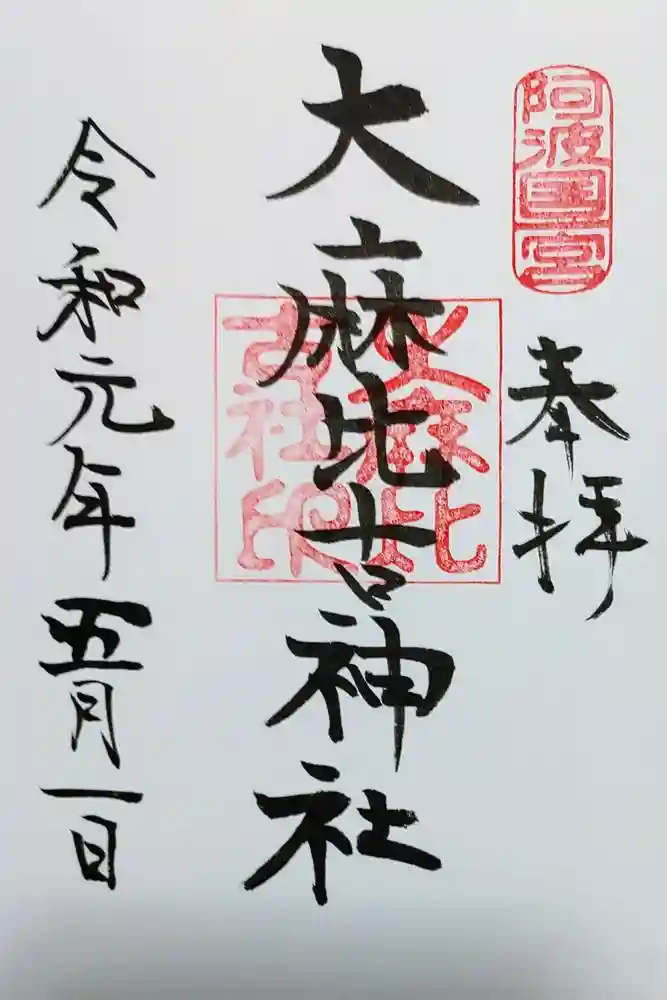 阿波国一宮
奉拝
大麻比古神社
大麻比
古社印
令和元年五月一日